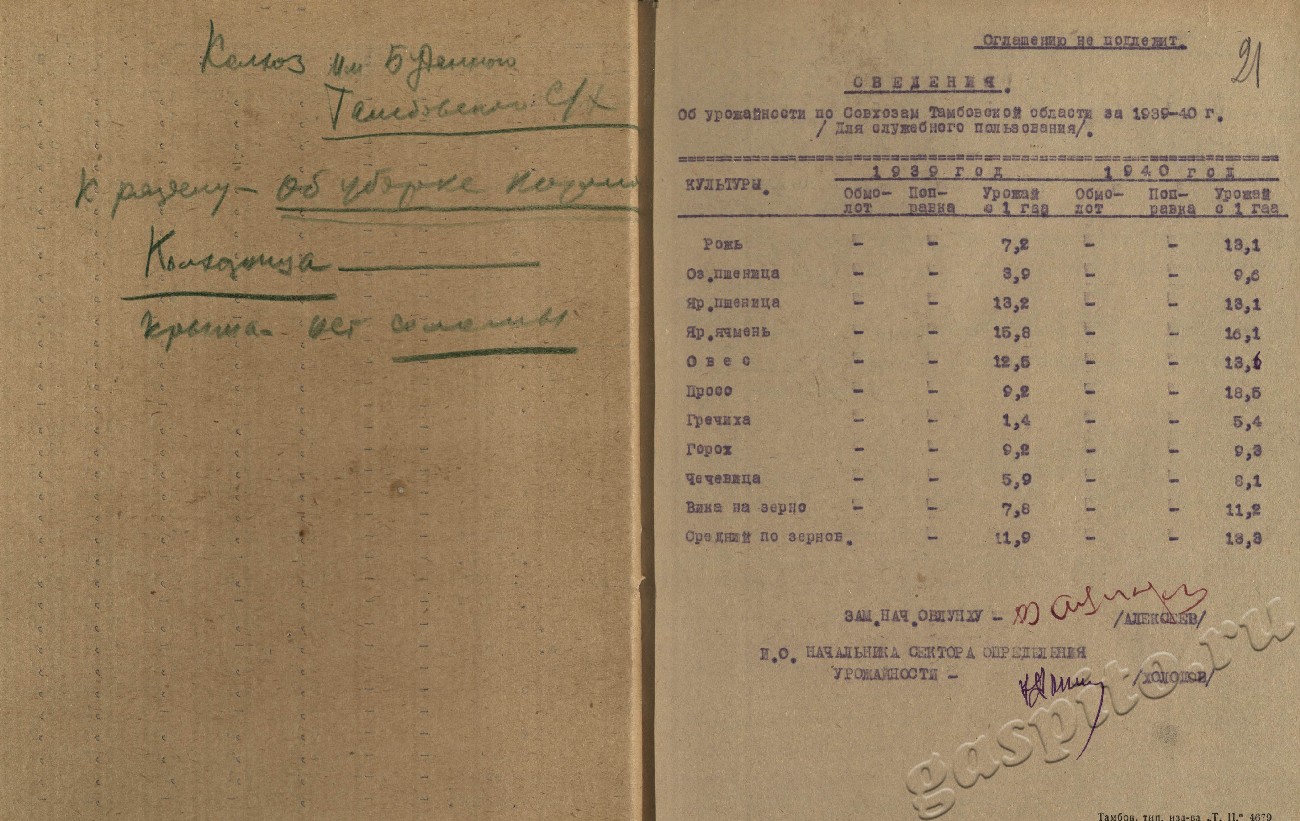 Колхоз им Буденного
Тамбовского с/х
К разделу – Об уборке
Колхозница
крыта – нет соломы
Оглашению не подлежит.
21
СВЕДЕНИЯ.
Об урожайности по Совхозам Тамбовской области за 1939-40 г.
/ Для служебного пользования/.
КУЛЬТУРЫ. 1939 год 1940 год
Обмо-лот Поп-равка Урожай с 1 гаа Обмо-лот Поп-равка Урожай с 1 гаа
Рожь - - 7,2 - - 13,1
Оз.пшеница - - 3,9 - - 9,6
Яр.пшеница - - 13,2 - - 13,1
Яр.ячмень - - 15,8 - - 16,1
Овес - - 12,5 - - 13,6
Просо - - 9,2 - - 18,5
Гречиха - - 1,4 - - 5,4
Горох - - 9,2 - - 9,3
Чечевица - - 5,9 - - 8,1
Вика на зерно - - 7,8 - - 11,2
Средний по зернов. - 11,9 - - 13,3
ЗАМ.НАЧ.ОБЛУНХУ - /АЛЕКСЕЕВ/
И.О. НАЧАЛЬНИКА СЕКТОРА ОПРЕДЕЛЕНИЯ
УРОЖАЙНОСТИ - /ХОЛОПОВ/
gaspito.ru
Тамбов, тип. изд-ва „Т. П.“ 4679